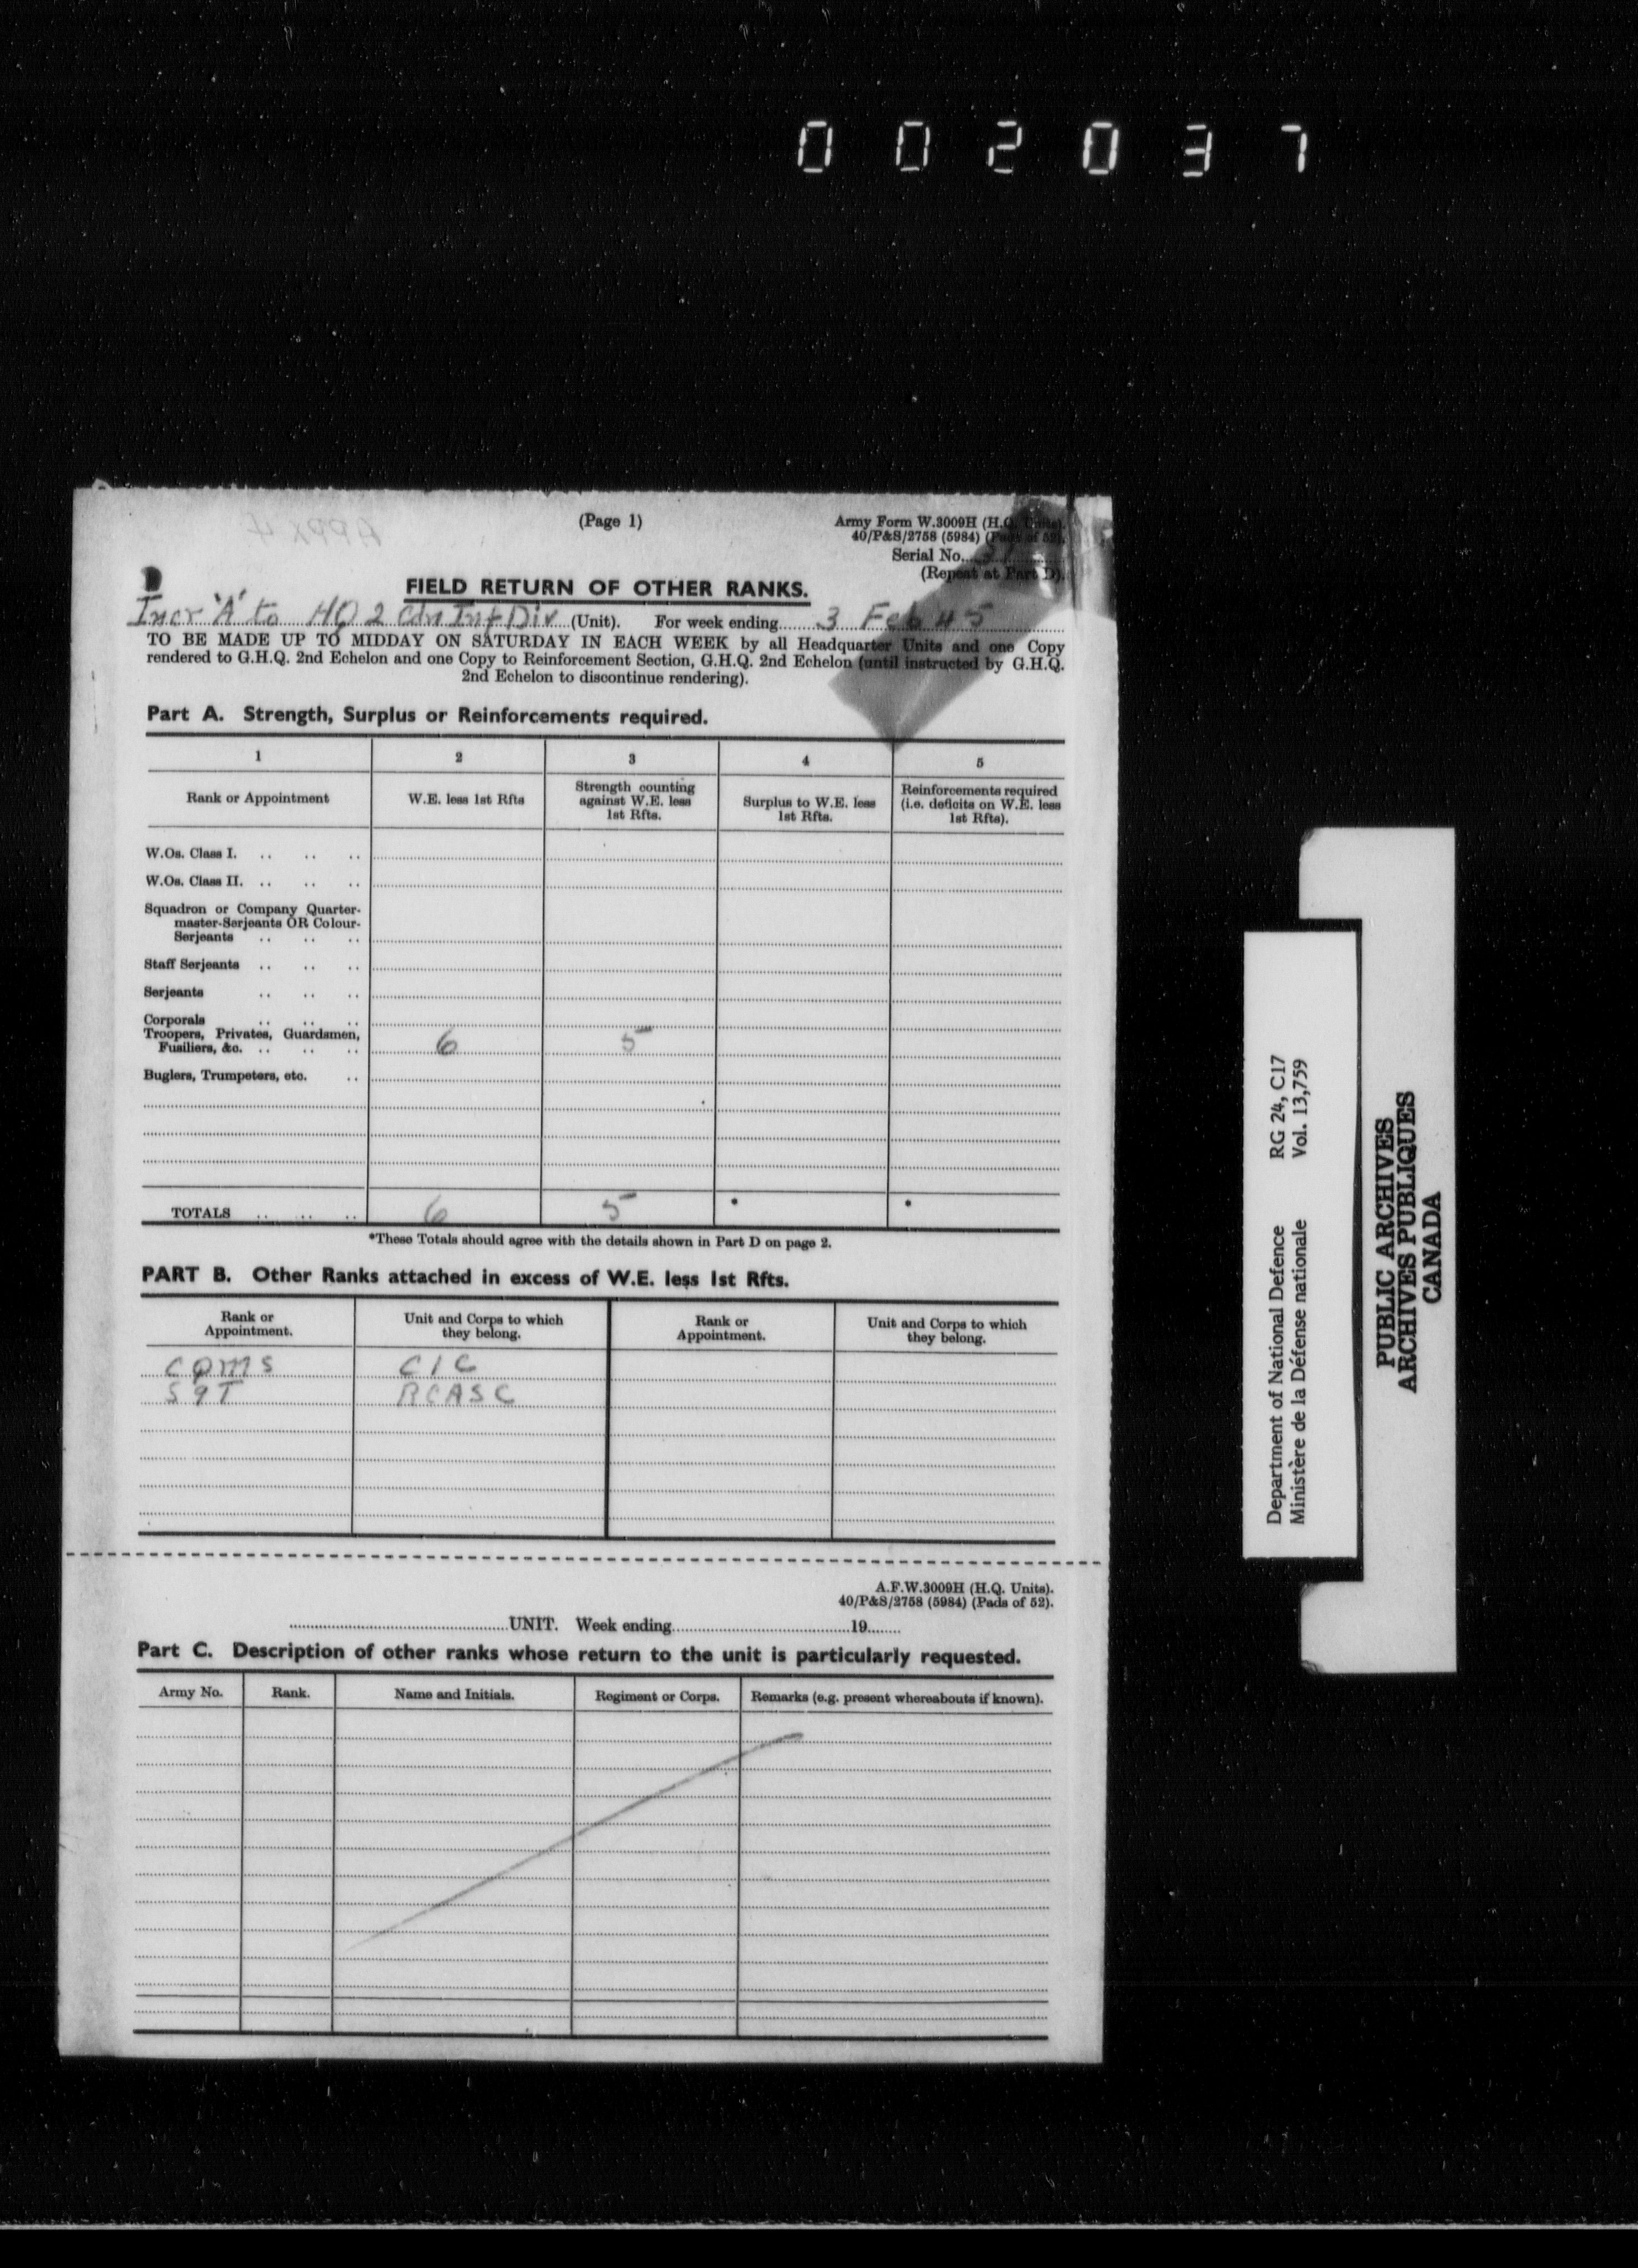 002037
(Page 1)
Army Form W.3009H (H.Q. Units).
40/P&S/2758 (5984) (Pads of 52).
Serial No.
(Repeat at Part D).
FIELD RETURN OF OTHER RANKS.
Incr 'A' to HQ 2 Cdn Inf Div (Unit). For week ending 3 Feb 45
TO BE MADE UP TO MIDDAY ON SATURDAY IN EACH WEEK by all Headquarter Units and one Copy
rendered to G.H.Q. 2nd Echelon and one Copy to Reinforcement Section, G.H.Q. 2nd Echelon (until instructed by G.H.Q.
2nd Echelon to discontinue rendering).
Part A. Strength, Surplus or Reinforcements required.
1 2 3 4 5
Rank or Appointment
W.E. less 1st Rfts
Strength counting
against W.E. less
1st Rfts.
Surplus to W.E. less
1st Rfts.
Reinforcements required
(i.e. deficits on W.E. less
1st Rfts).
W.Os. Class I. .. .. ..
W.Os. Class II. .. .. ..
Squadron or Company Quarter-
master-Serjeants OR Colour-
Serjeants .. .. ..
Staff Serjeants .. .. ..
Serjeants .. .. ..
Corporals .. .. ..
Troopers, Privates, Guardsmen,
Fusiliers, &c. .. .. .. 6 5
Buglers, Trumpeters, etc. ..
TOTALS .. .. .. 6 5 * *
*These Totals should agree with the details shown in Part D on page 2.
PART B. Other Ranks attached in excess of W.E. less 1st Rfts.
Rank or
Appointment.
Unit and Corps to which
they belong.
Rank or
Appointment.
Unit and Corps to which
they belong.
CQMS CIC
SgT RCASC
A.F.W.3009H (H.Q. Units).
40/P&S/2758 (5984) (Pads of 52).
UNIT. Week ending 19
Part C. Description of other ranks whose return to the unit is particularly requested.
Army No. Rank. Name and Initials. Regiment or Corps. Remarks (e.g. present whereabouts if known).
Department of National Defence RG 24, C17
Ministère de la Défense nationale Vol. 13,759
PUBLIC ARCHIVES
ARCHIVES PUBLIQUES
CANADA